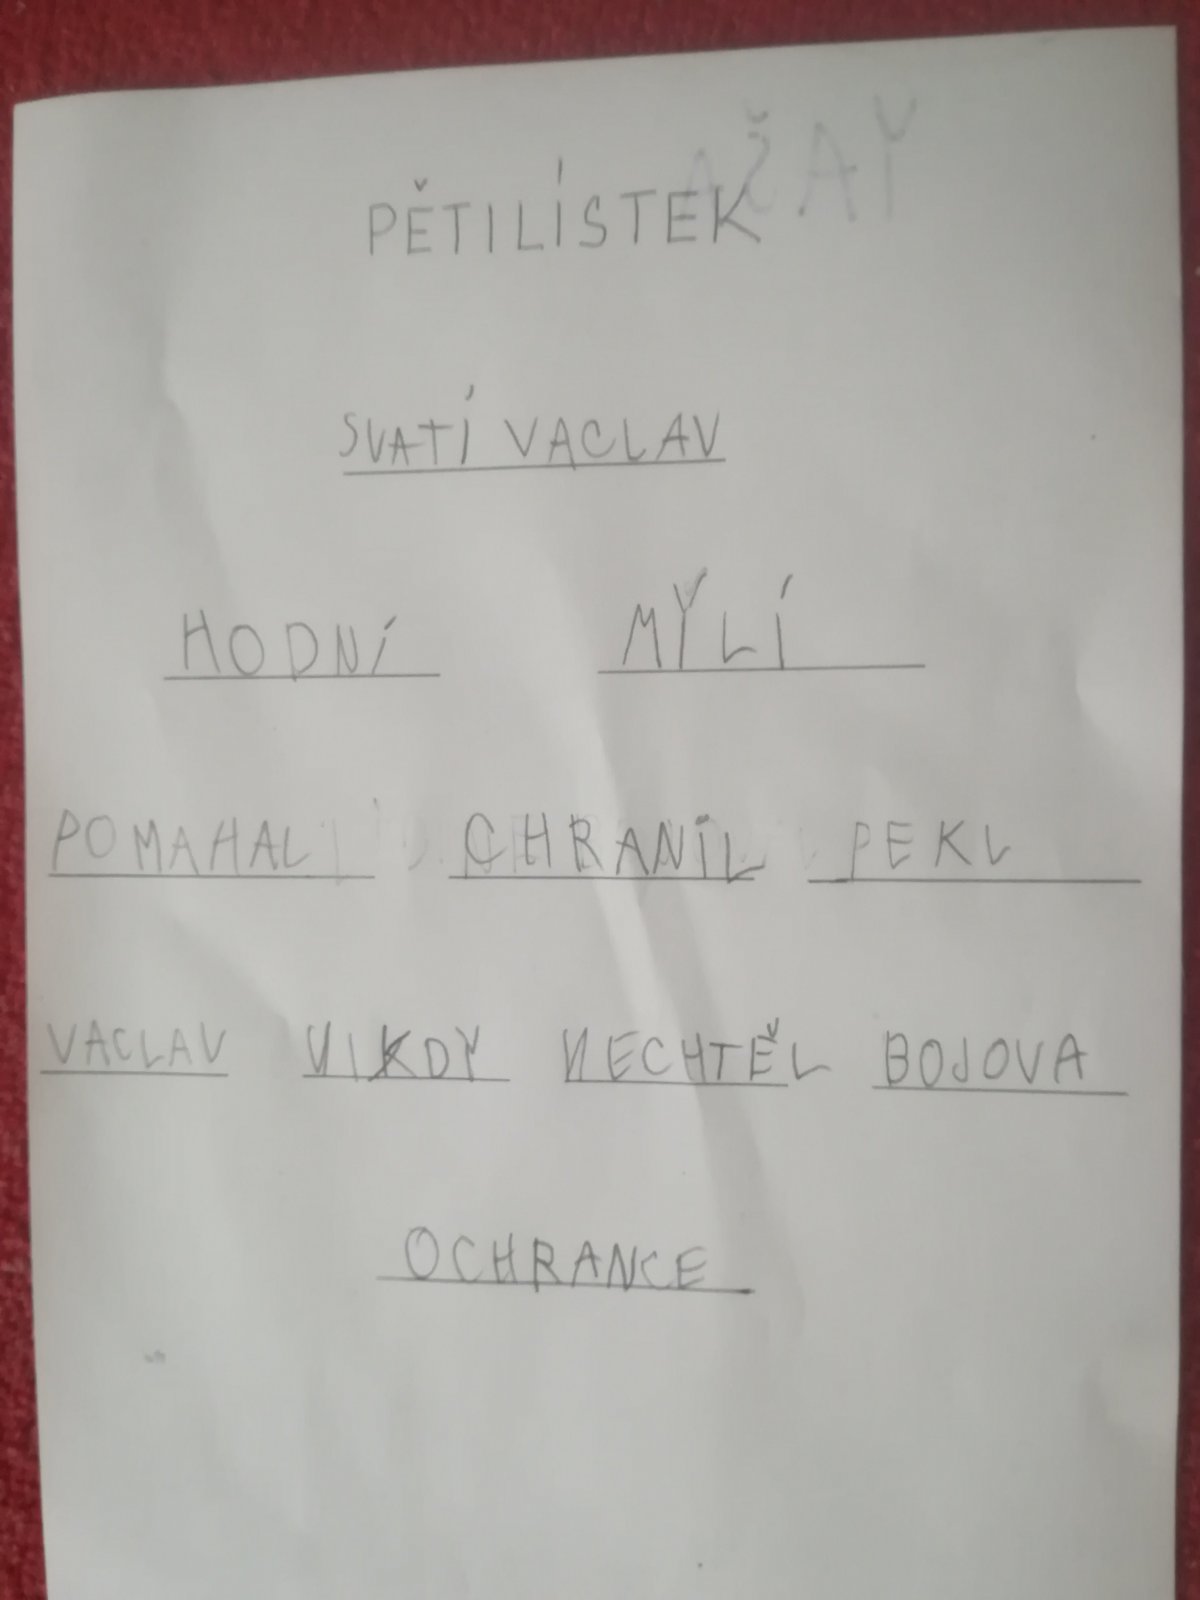 PĚTILÍSTEK
SVATÍ VACLAV
HODNÍ MÝLÍ
POMAHAL CHRANIL PEKL
VACLAV NIKDY NECHTĚL BOJOVA
OCHRANCE